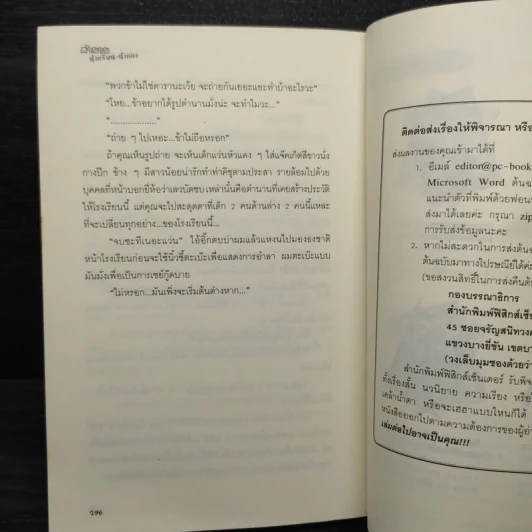 ตำนาน
นักเรียน-นักเลง
"พวกข้าไม่ใช่ดารานะเว้ย จะถ่ายกันเยอะแยะทำบ้าอะไรวะ"
"ไหย...ข้าอยากได้รูปตำนานมั่งน่ะ จะทำไมวะ..."
"...................."
"ถ่าย ๆ ไปเหอะ...ข้าไม่ถือหรอก"
ถ้าคุณเห็นรูปถ่าย จะเห็นเด็กแว่นหัวแดง ๆ ใส่แจ๊คเก็ตสีขาวนั่ง
กางปีก ข้าง ๆ มีสาวน้อยน่ารักทำท่าคิขุตามประสา รายล้อมไปด้วย
บุคคลที่หน้าบอกยี่ห้อว่าเลวบัดซบ เหล่านั้นคือตำนานที่เคยสร้างประวัติ
ให้โรงเรียนนี้ แต่คุณจะไปสะดุดตาที่เด็ก 2 คนด้านล่าง 2 คนนี้แหละ
ที่จะเปลี่ยนทุกอย่าง...ของโรงเรียนนี้...
"จบซะทีเนอะแว่น" ไอ้อิ๊กตบบ่าผมแล้วแหงนไปมองธงชาติ
หน้าโรงเรียนก่อนจะใช้นิ้วชี้ตะเบ๊ะเพื่อแสดงการอำลา ผมตะเบ๊ะแบบ
มันมั่งเพื่อเป็นการเซย์กู๊ดบาย
"ไม่หรอก...มันเพิ่งจะเริ่มต้นต่างหาก..."
296
ติดต่อส่งเรื่องให้พิจารณา หรือ
ส่งผลงานของคุณเข้ามาได้ที่
1. อีเมล์ editor@pc-book
Microsoft Word ต้นฉ
แนะนำตัวที่พิมพ์ด้วยฟอน
ส่งมาได้เลยค่ะ กรุณา zip
การรับส่งข้อมูลนะคะ
2. หากไม่สะดวกในการส่งต้น
ต้นฉบับมาทางไปรษณีย์ได้ค่
(ขอสงวนสิทธิ์ในการส่งคืนต้
กองบรรณาธิการ
สำนักพิมพ์ฟิสิกส์เซ็น
45 ซอยจรัญสนิทวงศ
แขวงบางยี่ขัน เขตบา
(วงเล็บมุมซองด้วยว่า
สำนักพิมพ์ฟิสิกส์เซ็นเตอร์ รับพิจ
ทั้งเรื่องสั้น นวนิยาย ความเรียง หรือ
เคล้าน้ำตา หรือจะเฮฮาแบบไหนก็ได้
หนังสือออกไปตามความต้องการของผู้อ่า
เล่มต่อไปอาจเป็นคุณ!!!